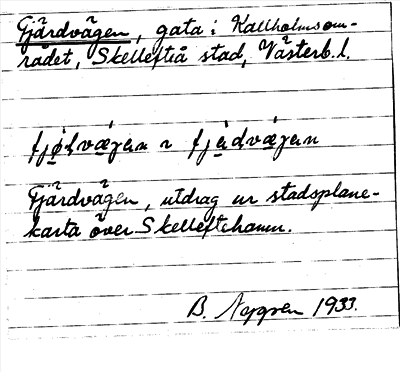 Fjärdvägen, gata i Kallholmsom-
rådet, Skellefteå stad, Västerb. l.
Fjärdvägen, utdrag ur stadsplane-
karta över Skelleftehamn.
B. Nygren 1933.